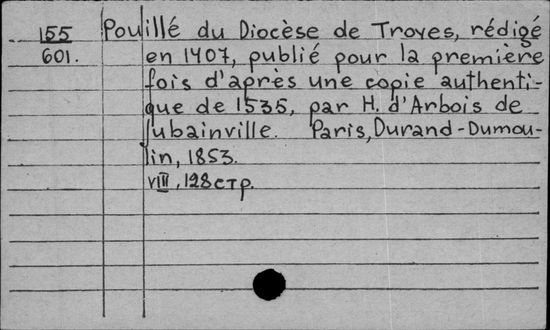 155 Pouillé du Diocèse de Troyes, rédigé
601. en 1407, publié pour la première
fois d'après une copie authenti-
que de 1535, par H. d'Arbois de
Jubainville. Paris, Durand-Dumou-
lin, 1853.
VIII, 128 стр.